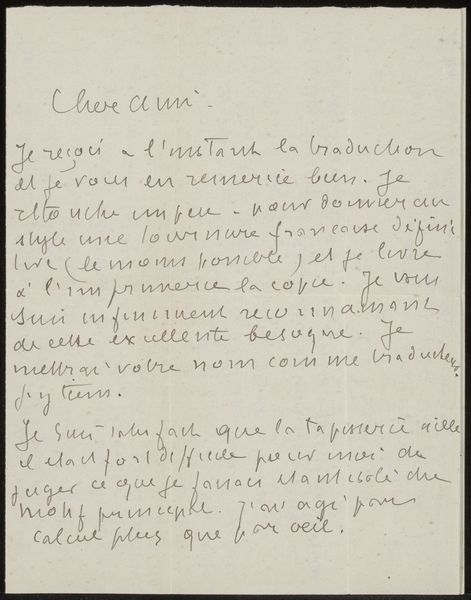 Cher ami.
Je reçois a l'instant la traduction
et je vous en remercie bien. Je
retouche un peu - pour donner au
style une tournure francaise défini
tive (le moins possible) et je livre
à l'imprimerie la copie. Je vous
suis infiniment reconnaissant
de cette excellente besogne. Je
mettrai votre nom comme traducteur.
J'y tiens.
Je suis satisfait que la tapisserie aille
il etait fort difficile pour moi de
juger ce que je faisais etant isolé du
motif principe. J'ai agi par
calcul plus que par oeil.